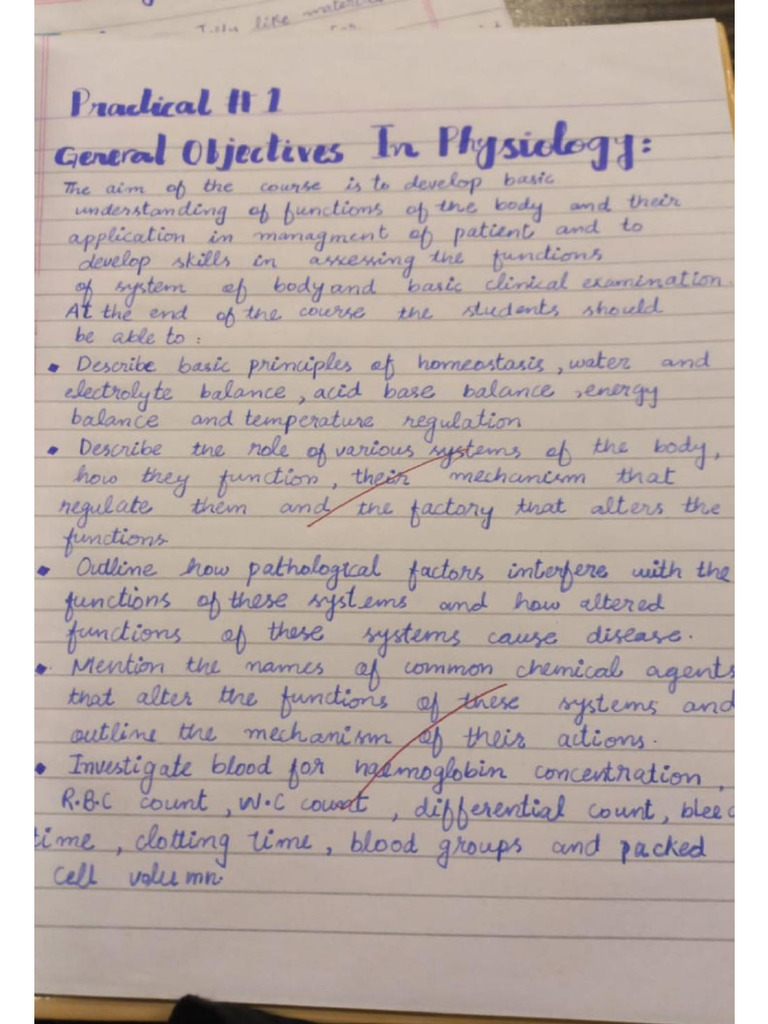 Title like materi
Practical # 1
General Objectives In Physiology:
The aim of the course is to develop basic
understanding of functions of the body and their
application in managment of patient and to
develop skills in assessing the functions
of system of body and basic clinical examination.
At the end of the course the students should
be able to :
• Describe basic principles of homeostasis, water and
electrolyte balance, acid base balance, energy
balance and temperature regulation
• Describe the role of various systems of the body,
how they function, their mechanism that
regulate them and the factory that alters the
functions
• Outline how pathological factors interfere with the
functions of these systems and how altered
functions of these systems cause disease.
• Mention the names of common chemical agents
that alter the functions of these systems and
outline the mechanism of their actions.
• Investigate blood for haemoglobin concentration,
R.B.C count, W.C count, differential count, bleed
time, clotting time, blood groups and packed
cell volumn.